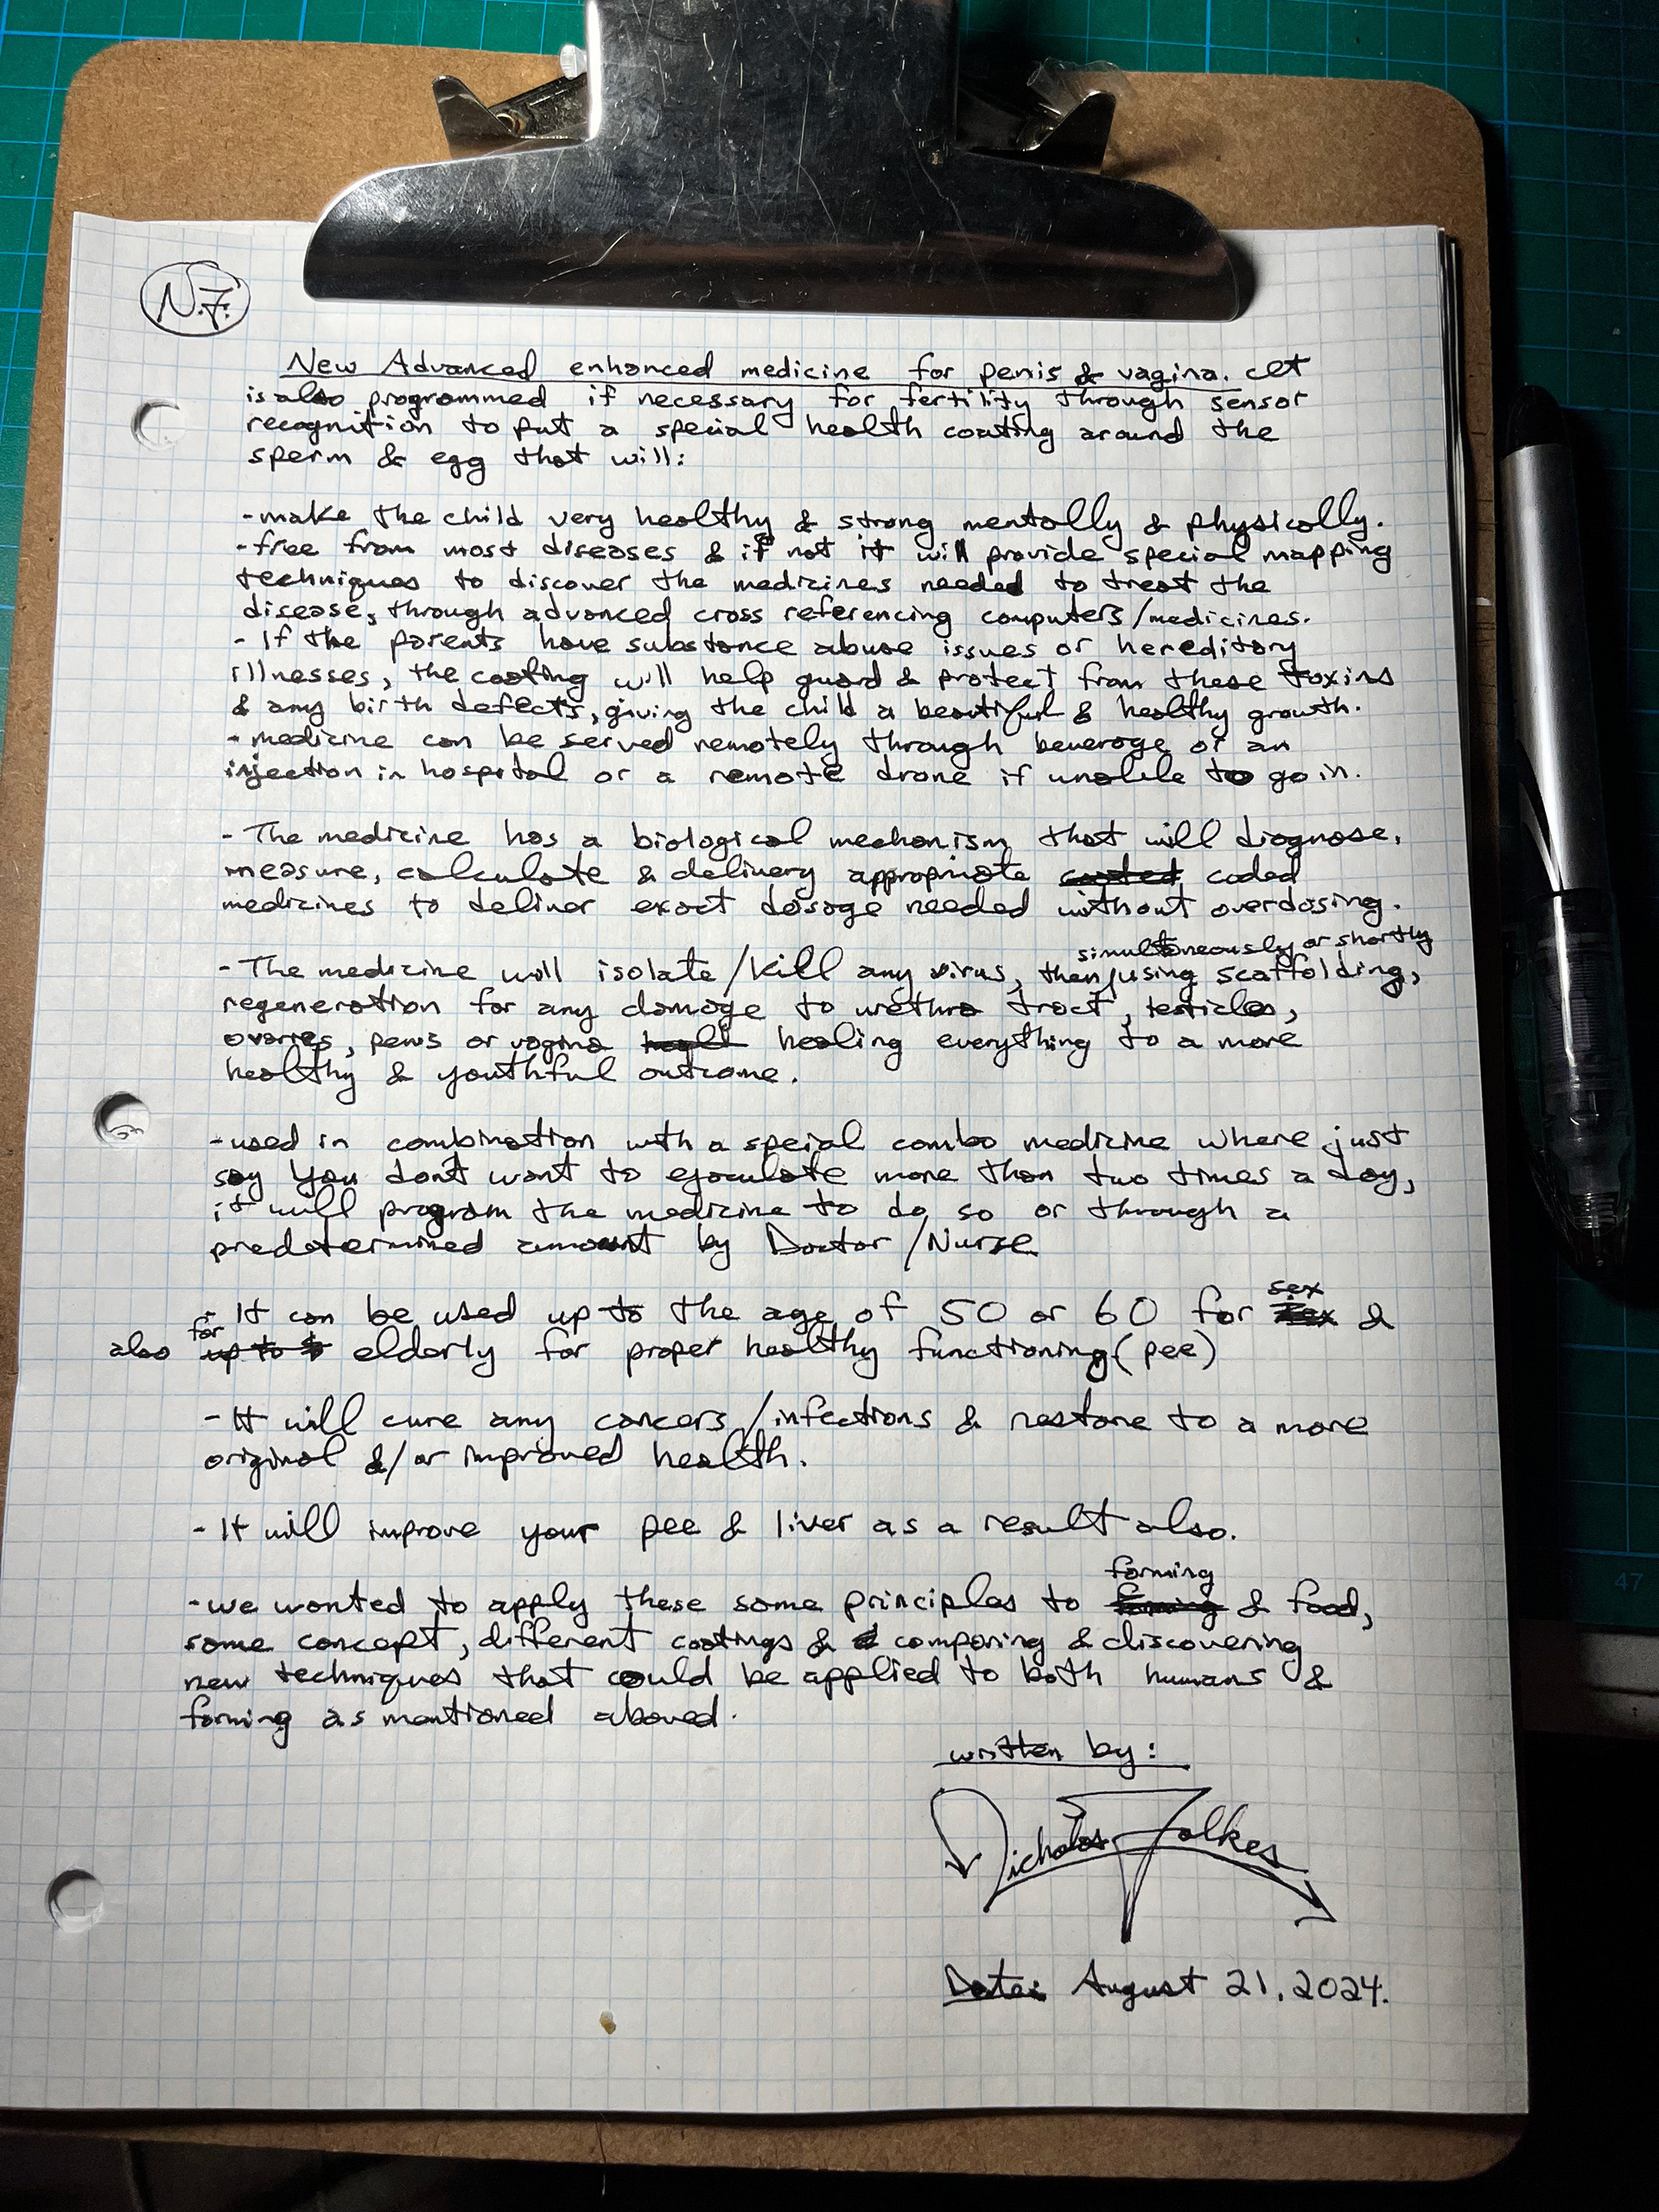 N.F.
New Advanced enhanced medicine for penis & vagina. It
is also programmed if necessary for fertility through sensor
recognition to put a special health coating around the
sperm & egg that will:
- make the child very healthy & strong mentally & physically.
- free from most diseases & if not it will provide special mapping
techniques to discover the medicines needed to treat the
disease, through advanced cross referencing computers/medicines.
- If the parents have substance abuse issues or hereditory
illnesses, the coating will help guard & protect from these toxins
& any birth defects, giving the child a beautiful & healthy growth.
- medicine can be served remotely through beverage or an
injection in hospital or a remote drone if unable to go in.
- The medicine has a biological mechanism that will diagnose,
measure, calculate & delivery appropriate coated coded
medicines to deliver exact dosage needed without overdosing.
simultaneously or shortly
- The medicine will isolate/kill any virus, then using scaffolding,
regeneration for any damage to urethra tract, testicles,
ovaries, penis or vagina healing everything to a more
healthy & youthful outcome.
- used in combination with a special combo medicine where just
say you don't want to ejaculate more than two times a day,
it will program the medicine to do so or through a
predetermined amount by Doctor/Nurse
sex
- It can be used up to the age of 50 or 60 for &
for
also up to elderly for proper healthy functioning (pee)
- It will cure any cancers/infections & restore to a more
original &/or improved health.
- It will improve your pee & liver as a result also.
farming
- we wanted to apply these same principles to & food,
same concept, different coatings & comparing & discovering
new techniques that could be applied to both humans &
farming as mentioned aboved.
written by:
Nicholas Folkes
Date: August 21, 2024.
47